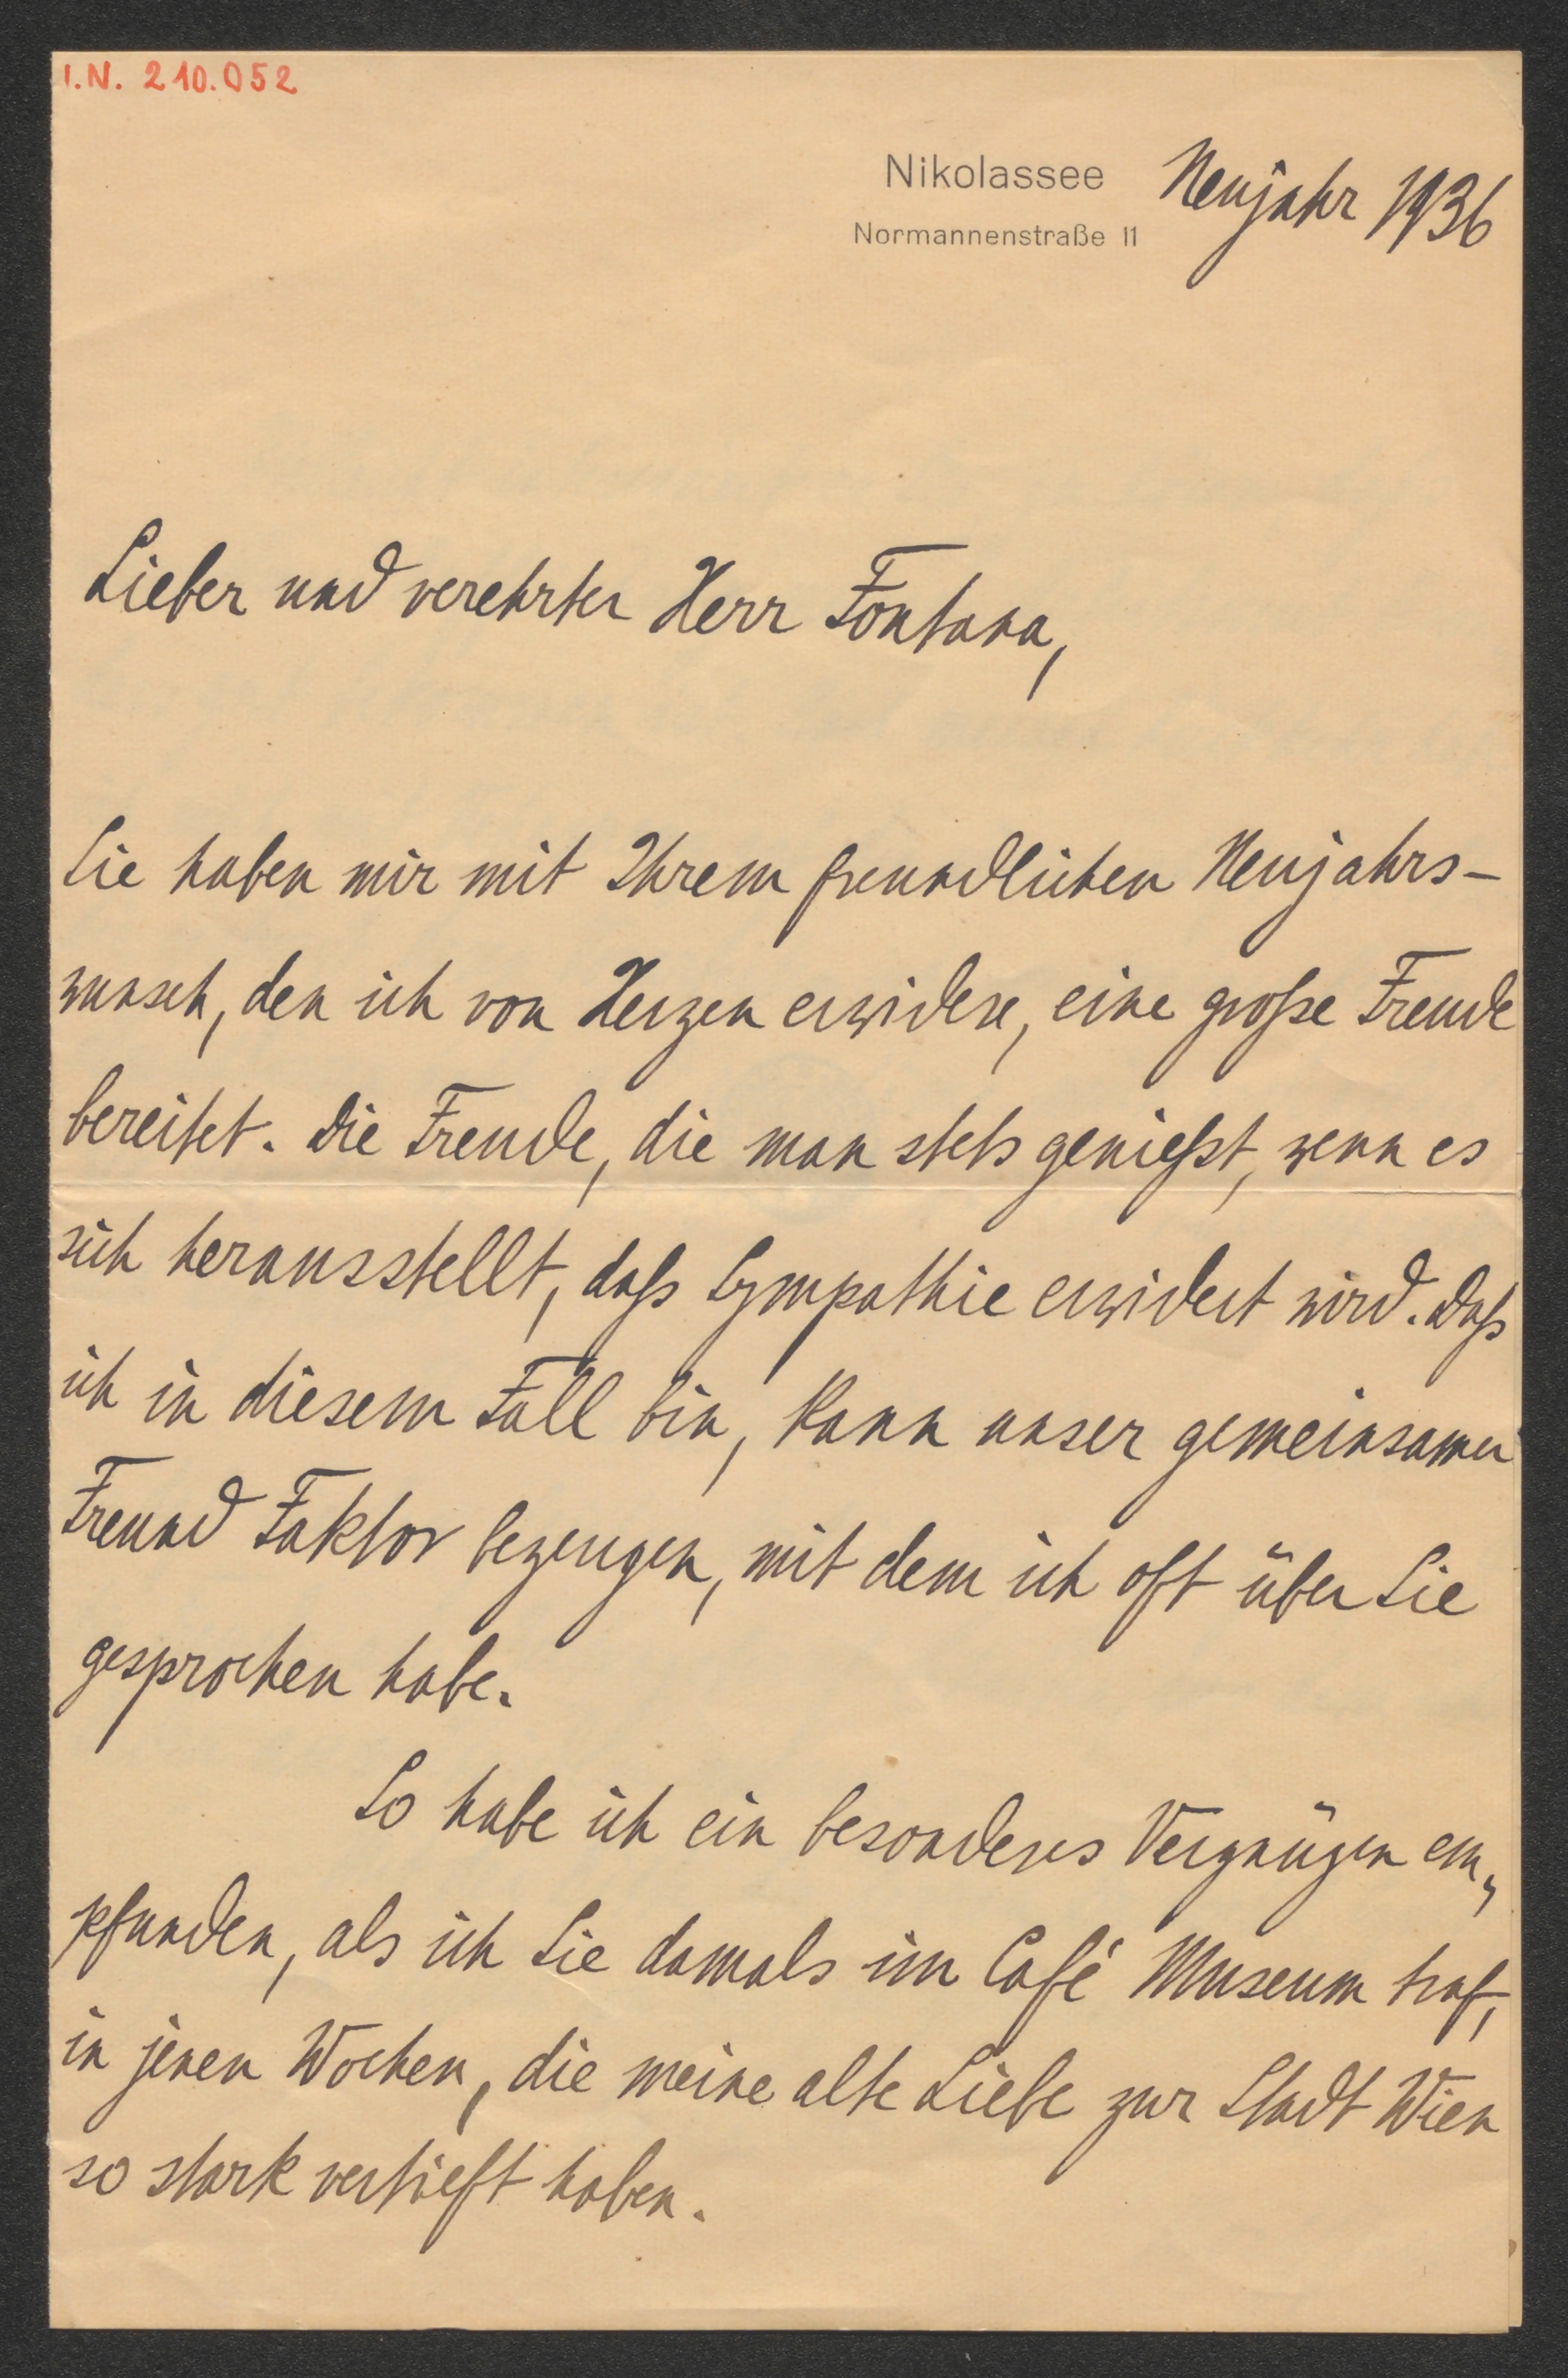 I.N. 210.052
Nikolassee Neujahr 1936
Normannenstraße 11
Lieber und verehrter Herr Fontana,
Sie haben mir mit Ihrem freundlichen Neujahrs-
wunsch, den ich von Herzen erwidere, eine große Freude
bereitet. Die Freude, die man stets genießt, wenn es
sich herausstellt, daß Sympathie erwidert wird. Daß
ich in diesem Fall bin, kann unser gemeinsamer
Freund Faktor bezeugen, mit dem ich oft über Sie
gesprochen habe.
So habe ich ein besonderes Vergnügen em-
pfunden, als ich Sie damals im Café Museum traf,
in jenen Wochen, die meine alte Liebe zur Stadt Wien
so stark vertieft haben.